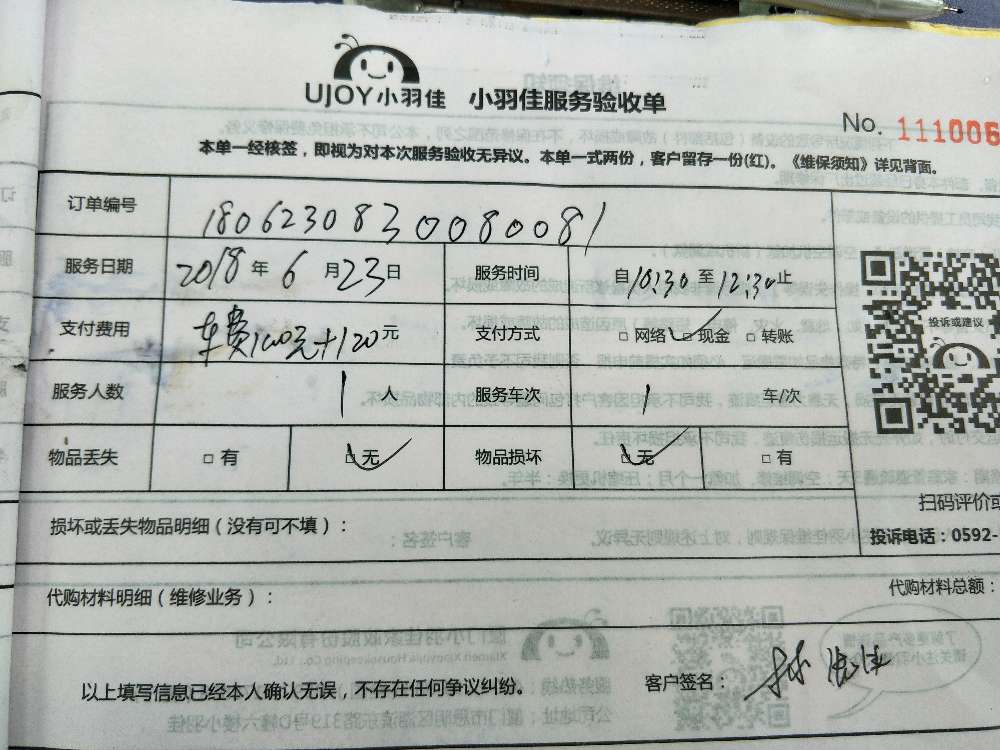 UJOY小羽佳 小羽佳服务验收单
No. 111006
本单一经核签，即视为对本次服务验收无异议。本单一式两份，客户留存一份(红)。《维保须知》详见背面。
订单编号 1806230830080081
服务日期 2018年6月23日 服务时间 自10:30至12:30止
投诉或建议
支付费用 车费100元+120元 支付方式 □网络 □现金 □转账
服务人数 1人 服务车次 1 车/次
物品丢失 □有 □无 物品损坏 □无 □有
扫码评价或
损坏或丢失物品明细（没有可不填）：
投诉电话：0592-
代购材料明细（维修业务）： 代购材料总额：
以上填写信息已经本人确认无误，不存在任何争议纠纷。 客户签名：